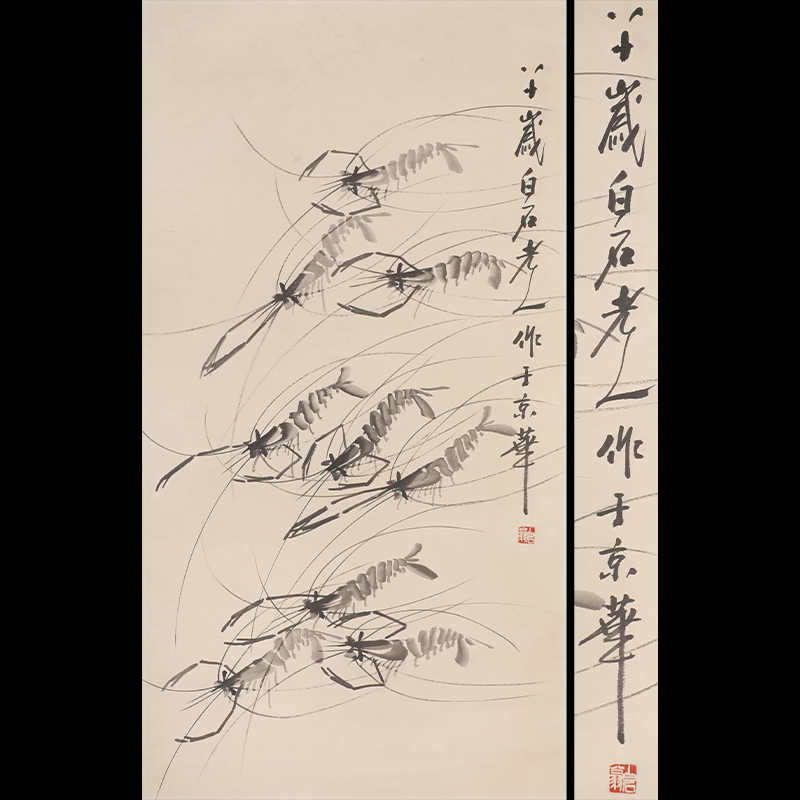 八十歲白石老人作于京華
八十歲白石老人作于京華